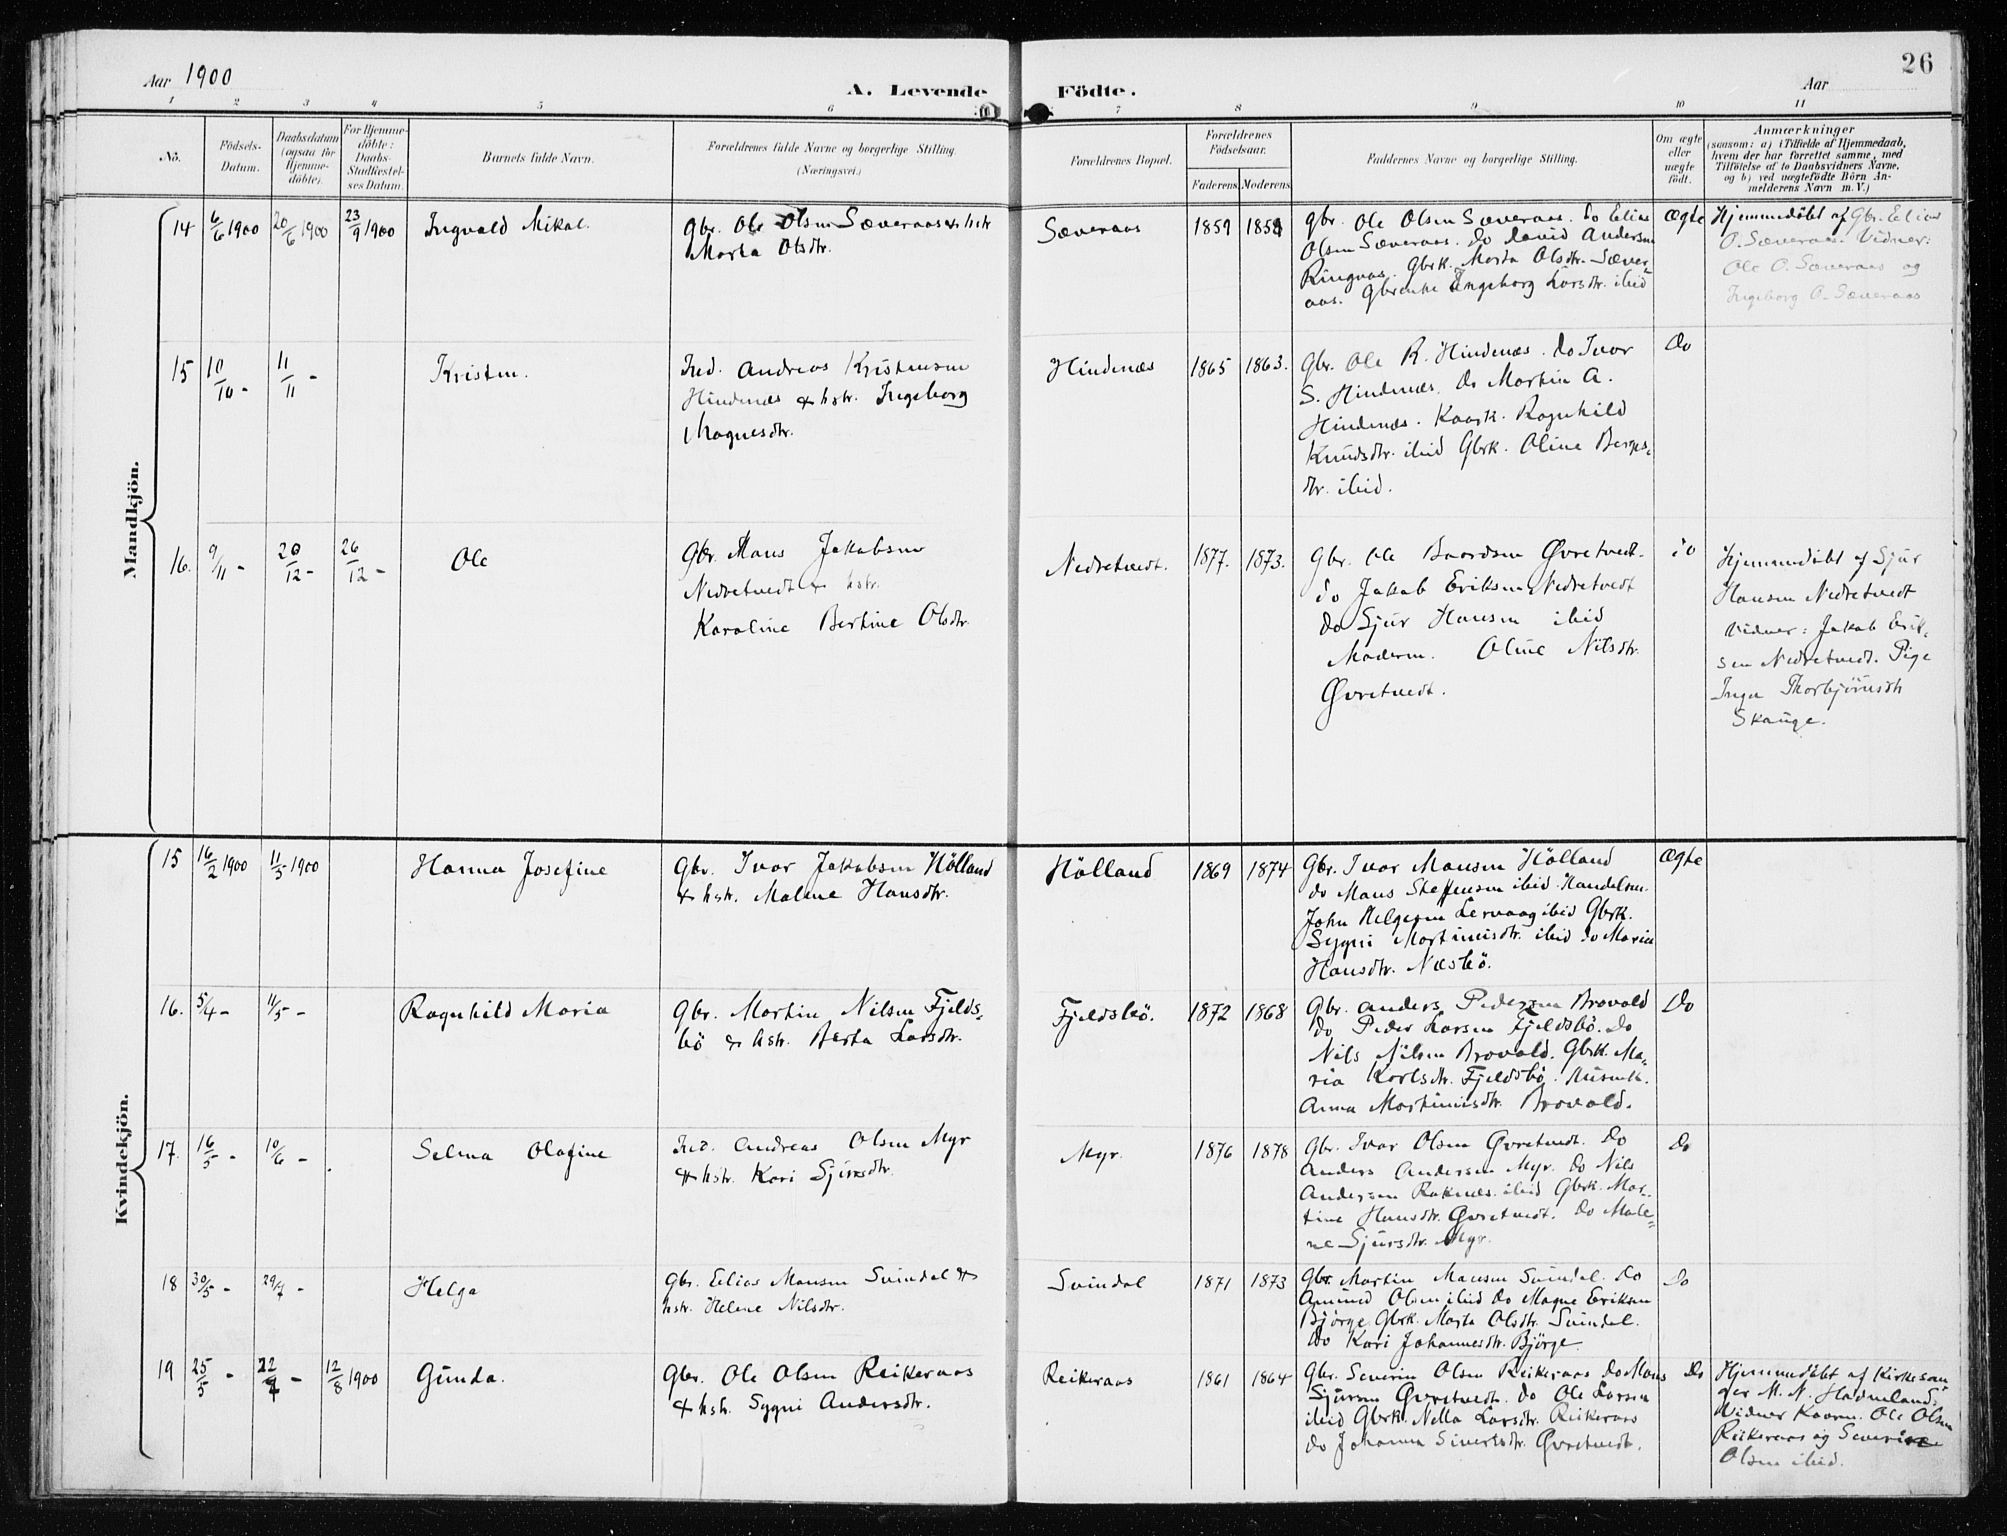 26
Aar 1900
A. Levende
Födte.
Aar
1 2 3 4 5 6 7 8 9 10 11
No.
Födsels-
Datum.
Daabsdatum
(ogsaa for
Hjemme-
döbte).
For Hjemme-
döbte:
Daabs-
Stadfæstel-
ses Datum.
Barnets fulde Navn.
Forældrenes fulde Navne og borgerlige Stilling.
(Næringsvei.)
Forældrenes Bopæl.
Forældrenes
Födselsaar.
Faderens. Moderens.
Faddernes Navne og borgerlige Stilling.
Om ægte
eller
uægte
födt.
Anmærkninger
(saasom: a) i Tilfælde af Hjemmedaab,
hvem der har forrettet samme, med
Tilföielse af to Daabsvidners Navne,
og b) ved uægtefödte Börn An-
melderens Navn m. V.)
Mandkjön.
14 6/6 1900 20/6 1900 23/9 1900 Ingvald Mikal.
Gbr. Ole Olsen Sæveraas & hstr
Marta Olsdtr.
Sæveraas 1859 1859
Gbr. Ole Olsen Sæveraas. do Elias
Olsen Sæveraas. do David Andersen
Ringaas. Gbrk. Marta Olsdtr. Sæver-
aas. Gbrenke Ingeborg Larsdtr. ibid
Ægte
Hjemmedöbt af Gbr. Elias
O. Sæveraas. Vidner:
Ole O. Sæveraas og
Ingeborg O. Sæveraas
15 10/10 - 11/11 - Kristen.
Ind. Andreas Kristensen
Hindenæs & hstr. Ingeborg
Magnesdtr.
Hindenæs 1865 1863.
Gbr. Ole R. Hindenæs. do Ivar
S. Hindenæs. do Martin A.
Hindenæs. Kaark. Ragnhild
Knudsdtr. ibid Gbrk. Oline Berges-
dtr. ibid.
Do
16. 9/11 - 20/12 - 26/12 - Ole
Gbr. Mans Jakobsen
Nedretvedt & hstr.
Karoline Bertine Olsdtr.
Nedretvedt. 1877. 1873.
Gbr. Ole Baardsen Øvretvedt.
do Jakob Eriksen Nedretvedt
do Sjur Hansen ibid
Moderen. Oline Nilsdtr.
Øvretvedt.
do
Hjemmedöbt af Sjur
Hansen Nedretvedt
Vidner: Jakob Erik-
sen Nedretvedt. Pige
Inga Thorbjörnsdtr
Skauge.
Kvindekjön.
15 16/2 1900 11/5 1900 Hanna Josefine
Gbr. Ivar Jakobsen Hölland
& hstr. Malene Hansdtr.
Hölland 1869 1874
Gbr. Ivar Mansen Hölland
do Mans Steffensen ibid. Handelsm.
John Helgesen Lervaag ibid Gbrk.
Sygni Martinusdtr. ibid do Maria
Hansdtr. Næsbö.
Ægte
16. 5/4 - 11/5 - Ragnhild Maria
Gbr. Martin Nilsen Fjelds-
bö & hstr. Berta Larsdtr.
Fjeldsbö. 1872 1868
Gbr. Anders Pedersen Brovold
do Peder Larsen Fjeldsbö. do
Nils Nilsen Brovold. Gbrk. Ma-
ria Karlsdtr. Fjeldsbö.
Anna Martinusdtr. Brovold.
Do
17. 16/5 - 10/6 - Selma Olafine
Ind. Andreas Olsen Myr
& hstr. Kari Sjursdtr.
Myr. 1876 1878
Gbr. Ivar Olsen Øvretvedt. Do
Anders Andersen Myr. do Nils
Andersen Raknæs. ibid Gbrk. Mar-
tine Hansdtr. Øvretvedt. do Male-
ne Sjursdtr. Myr.
Do
18 30/5 - 29/7 - Helga
Gbr. Elias Mansen Svindal &
hstr. Helene Nilsdtr.
Svindal 1871 1873
Gbr. Martin Mansen Svindal. Do
Amund Olsen ibid do Magne Eriksen
Björge. Gbrk. Marta Olsdtr. Svindal.
Do Kari Johannesdtr. Björge
Do
19 25/5 - 22/7 - 12/8 1900 Gunda.
Gbr. Ole Olsen Reikeraas
& hstr. Sygni Andersdtr.
Reikeraas 1861 1864
Gbr. Severin Olsen Reikeraas do Mons
Sjursen Øvretvedt. do Ole Larsen
ibid Gbrk. Nella Larsdtr. Reikeraas
do Johanna Sivertsdtr. Øvretvedt.
Do
Hjemmedöbt af Kirkesan-
ger M. N. Havneland.
Vidner Kaarm. Ole Olsen
Reikeraas og Severine
Olsen ibid.